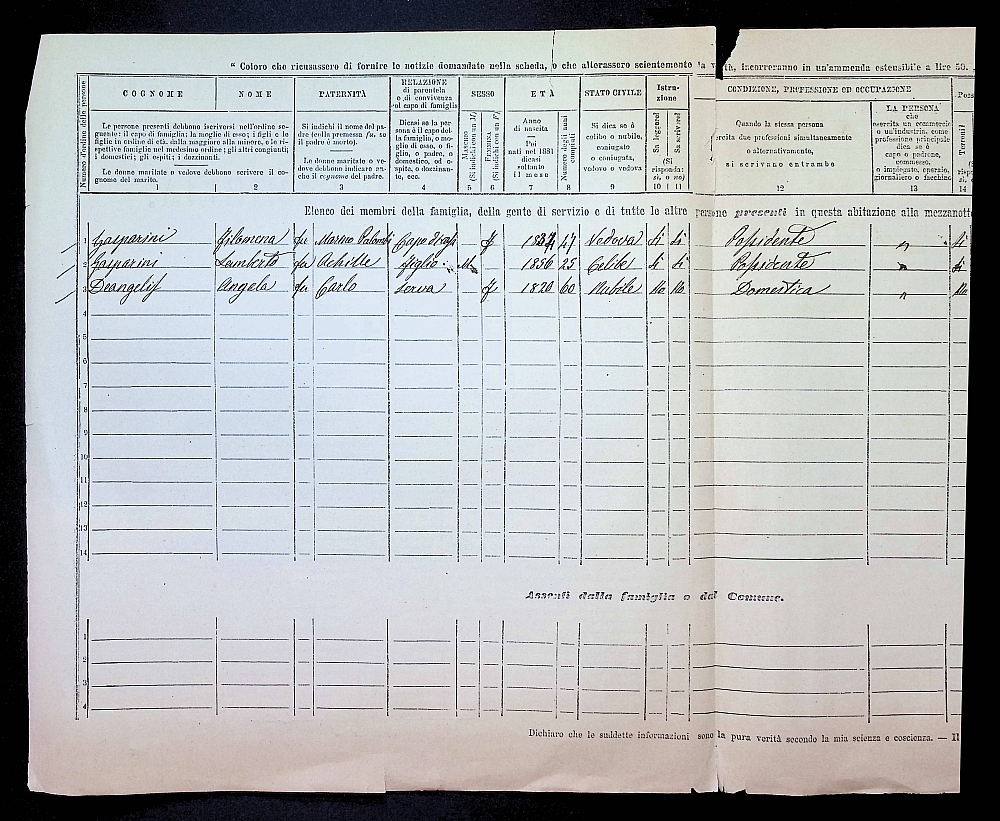 “ Coloro che ricusassero di fornire le notizie domandate nella scheda, o che alterassero scientemente la verità, incorreranno in un'ammenda estensibile a lire 50.
Numero d'ordine delle persone
COGNOME
Le persone presenti debbono iscriversi nell'ordine seguente: il capo di famiglia; la moglie di esso; i figli e le figlie in ordine di età, dalla maggiore alla minore, o le rispettive famiglie nel medesimo ordine; gli altri congiunti; i domestici; gli ospiti; i dozzinanti.
Le donne maritate o vedove debbono scrivere il cognome del marito.
1
NOME
2
PATERNITÀ
Si indichi il nome del padre (colla premessa fu, se il padre è morto).
Le donne maritate o vedove debbono indicare anche il cognome del padre.
3
RELAZIONE
di parentela
o di convivenza
col capo di famiglia
Dicasi se la persona è il capo della famiglia, o moglie di esso, o figlio, o padre, o domestico, od ospite, o dozzinante, ecc.
4
SESSO
Maschio
(Si indichi con un M)
5
Femmina
(Si indichi con un F)
6
ETÀ
Anno
di nascita
Poi
nati nel 1881
dicasi
soltanto
il mese
7
Numero degli anni
compiuti
8
STATO CIVILE
Si dica se è
celibe o nubile,
coniugato
o coniugata,
vedovo o vedova
9
Istruzione
Sa leggere?
Sa scrivere?
(Si
risponda:
sì, o no)
10 11
CONDIZIONE, PROFESSIONE OD OCCUPAZIONE
Quando la stessa persona
eserciti due professioni simultaneamente
o alternativamente,
si scrivano entrambe
12
LA PERSONA
che
esercita un commercio
o un'industria, come
professione principale
dica se è
capo o padrone,
commesso,
o impiegato, operaio,
giornaliero o facchino
13
Poss
Terreni?
14
Elenco dei membri della famiglia, della gente di servizio e di tutte le altre persone presenti in questa abitazione alla mezzanotte
1 Gasparini Filomena fu Marino Palombi Capo di fam F 1834 47 Vedova Si Si Possidente " Si
2 Gasparini Lamberto fu Achille figlio M 1856 25 Celibe Si Si Possidente " Si
3 Deangelis Angela fu Carlo serva F 1820 60 Nubile No No Domestica " No
4
5
6
7
8
9
10
11
12
13
14
Assenti dalla famiglia o dal Comune.
1
2
3
4
Dichiaro che le suddette informazioni sono la pura verità secondo la mia scienza e coscienza. — Il